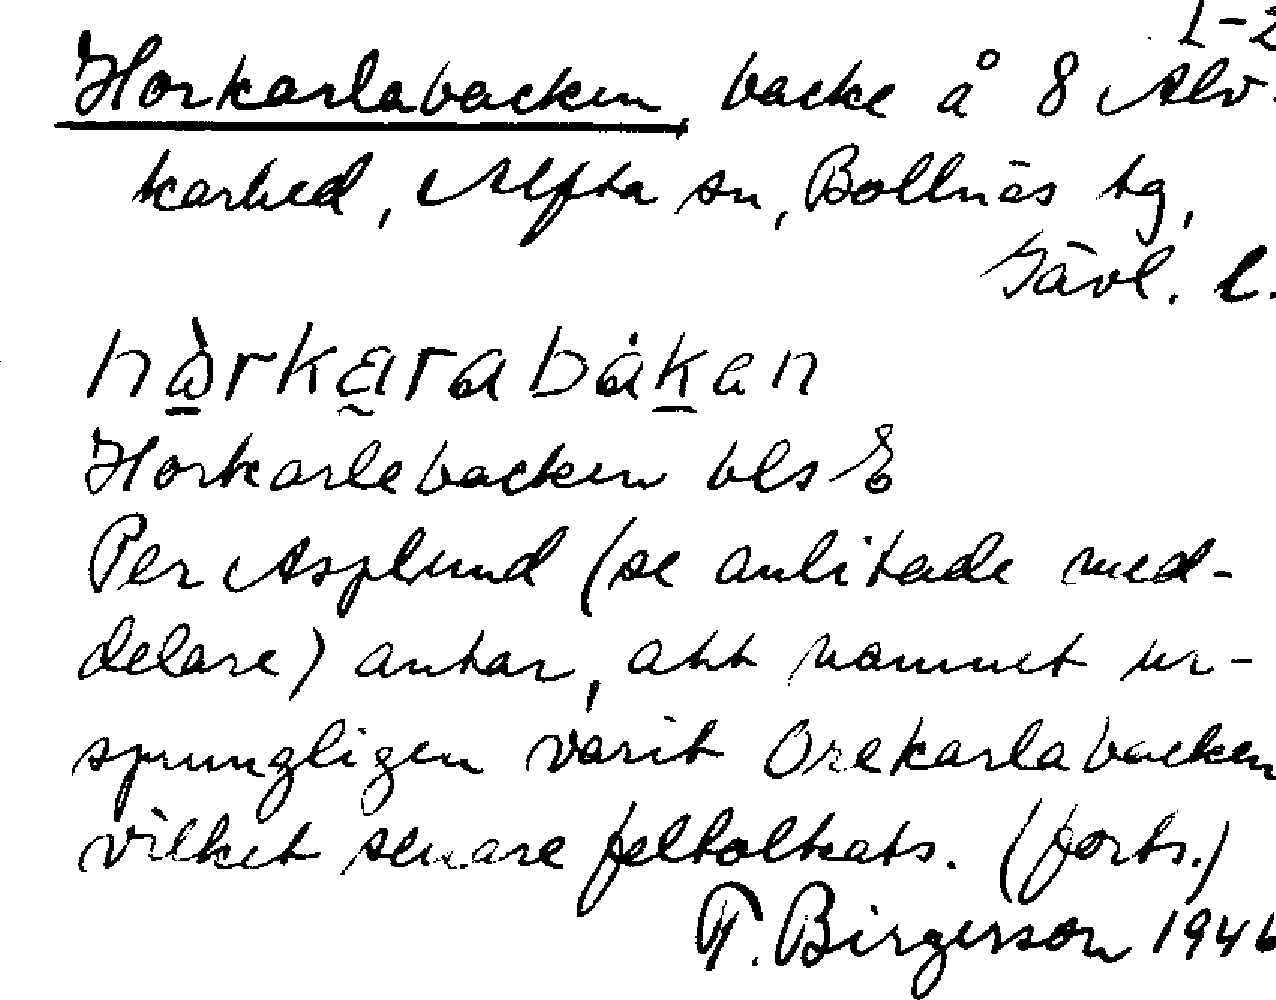 1-2
Horkarlabacken backe å 8 Älv-
karhed, Alfta sn, Bollnäs tg,
Gävl. l.
hòrkarabákan
Horkarlebacken bls E
Per Asplund (se anlitade med-
delare) antar, att namnet ur-
sprungligen varit Orekarlabacken
vilket senare feltolkats. (forts.)
T. Birgerson 1946